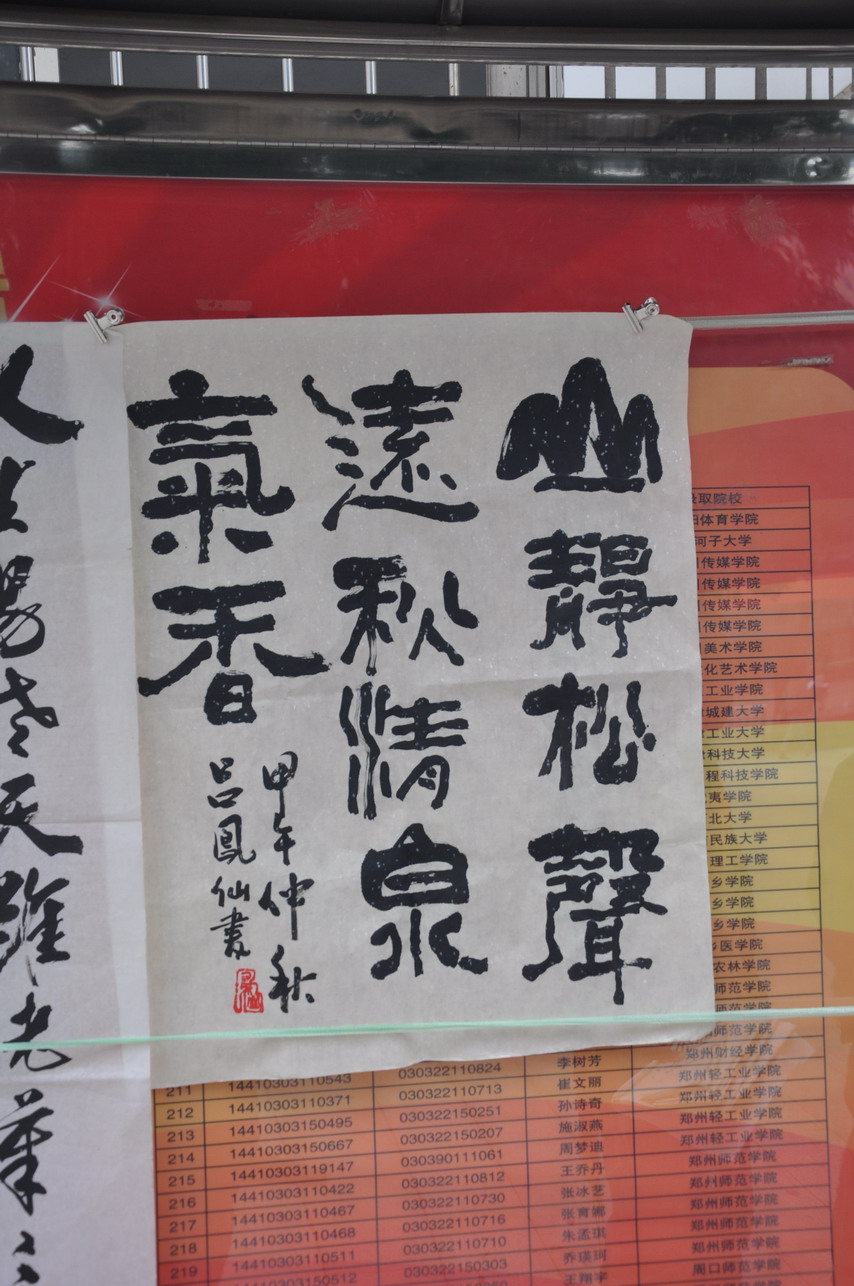 山靜松聲
遠秋清泉
氣香
甲午仲秋
呂鳳仙書
录取院校
体育学院
河子大学
传媒学院
传媒学院
传媒学院
传媒学院
美术学院
化艺术学院
工业学院
城建大学
工业大学
科技大学
程科技学院
夷学院
北大学
民族大学
理工学院
乡学院
乡学院
乡学院
乡医学院
农林学院
师范学院
师范学院
师范学院
郑州财经学院
030322110824 李树芳 郑州轻工业学院
211 14410303110543 030322110713 崔文丽 郑州轻工业学院
212 14410303110371 030322150251 孙诗奇 郑州轻工业学院
213 14410303150495 030322150207 施淑燕 郑州轻工业学院
214 14410303150667 030390111061 周梦迪 郑州师范学院
215 14410303119147 030322110812 王乔丹 郑州师范学院
216 14410303110422 030322110730 张冰艺 郑州师范学院
217 14410303110467 030322110716 张育娜 郑州师范学院
218 14410303110468 030322110710 朱孟琪 郑州师范学院
219 14410303110511 030322150303 乔瑛珂 周口师范学院
14410303150512 王翔宇
人生易老天難老